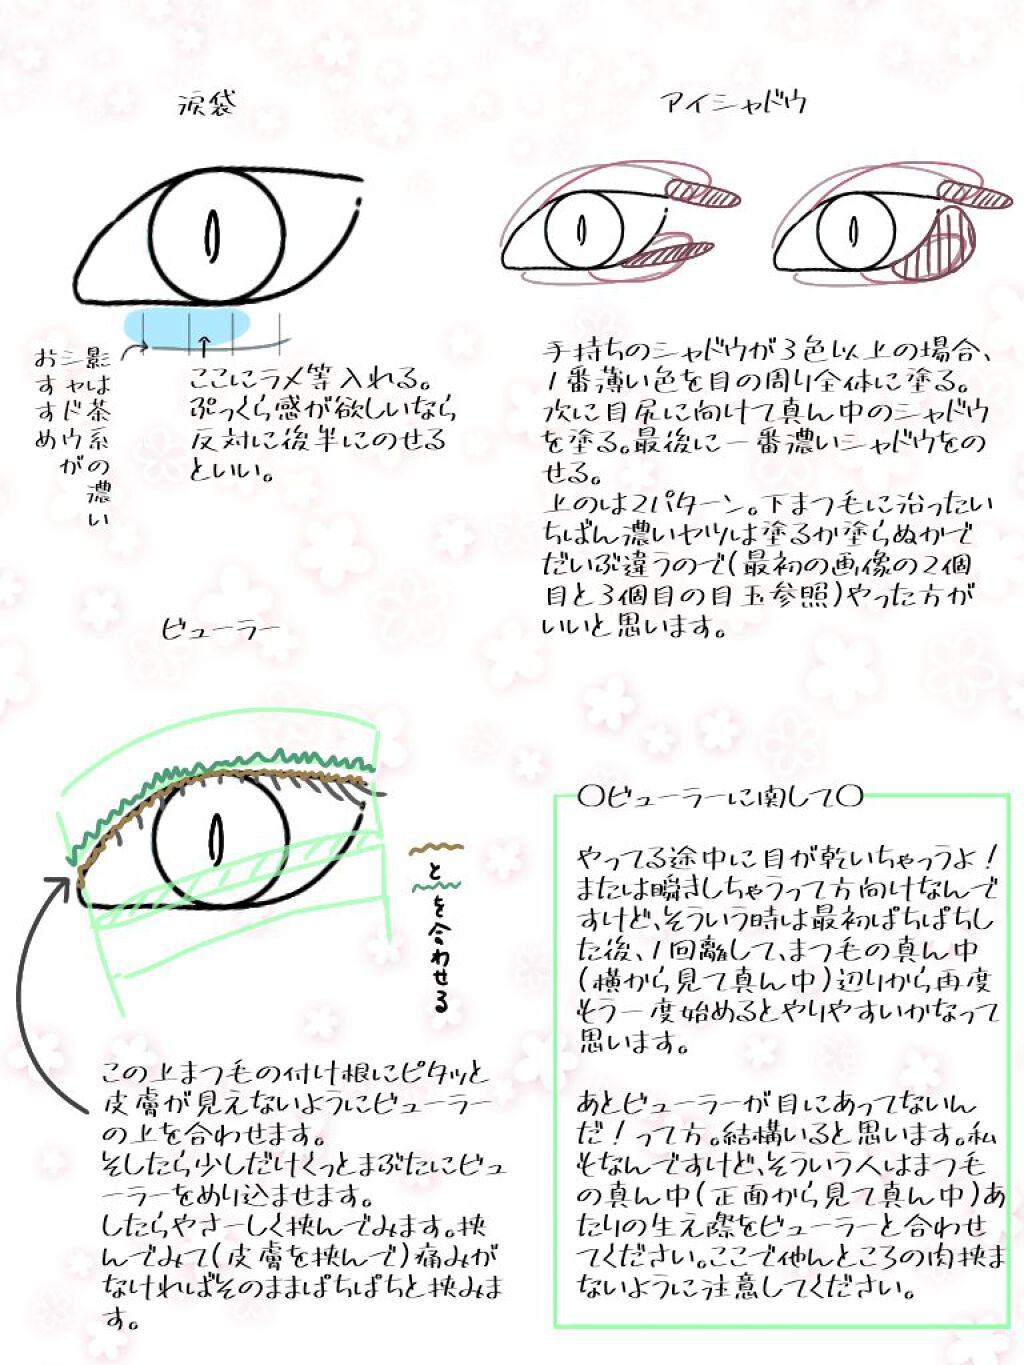 涙袋
影は茶系の濃い
シャドウが
おすすめ
ここにラメ等入れる。
ぷっくら感が欲しいなら
反対に後半にのせる
といい。
アイシャドウ
手持ちのシャドウが3色以上の場合、
1番薄い色を目の周り全体に塗る。
次に目尻に向けて真ん中のシャドウ
を塗る。最後に一番濃いシャドウをの
せる。
上のは2パターン。下まつ毛に沿ったい
ちばん濃いヤツは塗るか塗らぬかで
だいぶ違うので(最初の画像の2個
目と3個目の目玉参照)やった方が
いいと思います。
ビューラー
と
を合わせる
この上まつ毛の付け根にピタッと
皮膚が見えないようにビューラー
の上を合わせます。
そしたら少しだけくっとまぶたにビュ
ーラーをめり込ませます。
したらやさーしく挟んでみます。挟
んでみて(皮膚を挟んで)痛みが
なければそのままぱちぱちと挟みま
す。
〇ビューラーに関して〇
やってる途中に目が乾いちゃうよ!
または瞬きしちゃうって方向けなんで
すけど、そういう時は最初ぱちぱちし
た後、1回離して、まつ毛の真ん中
(横から見て真ん中)辺りから再度
もう一度始めるとやりやすいかなって
思います。
あとビューラーが目にあってないん
だ!って方。結構いると思います。私
もなんですけど、そういう人はまつ毛
の真ん中(正面から見て真ん中)あ
たりの生え際をビューラーと合わせ
てください。ここで他んところの肉挟ま
ないように注意してください。